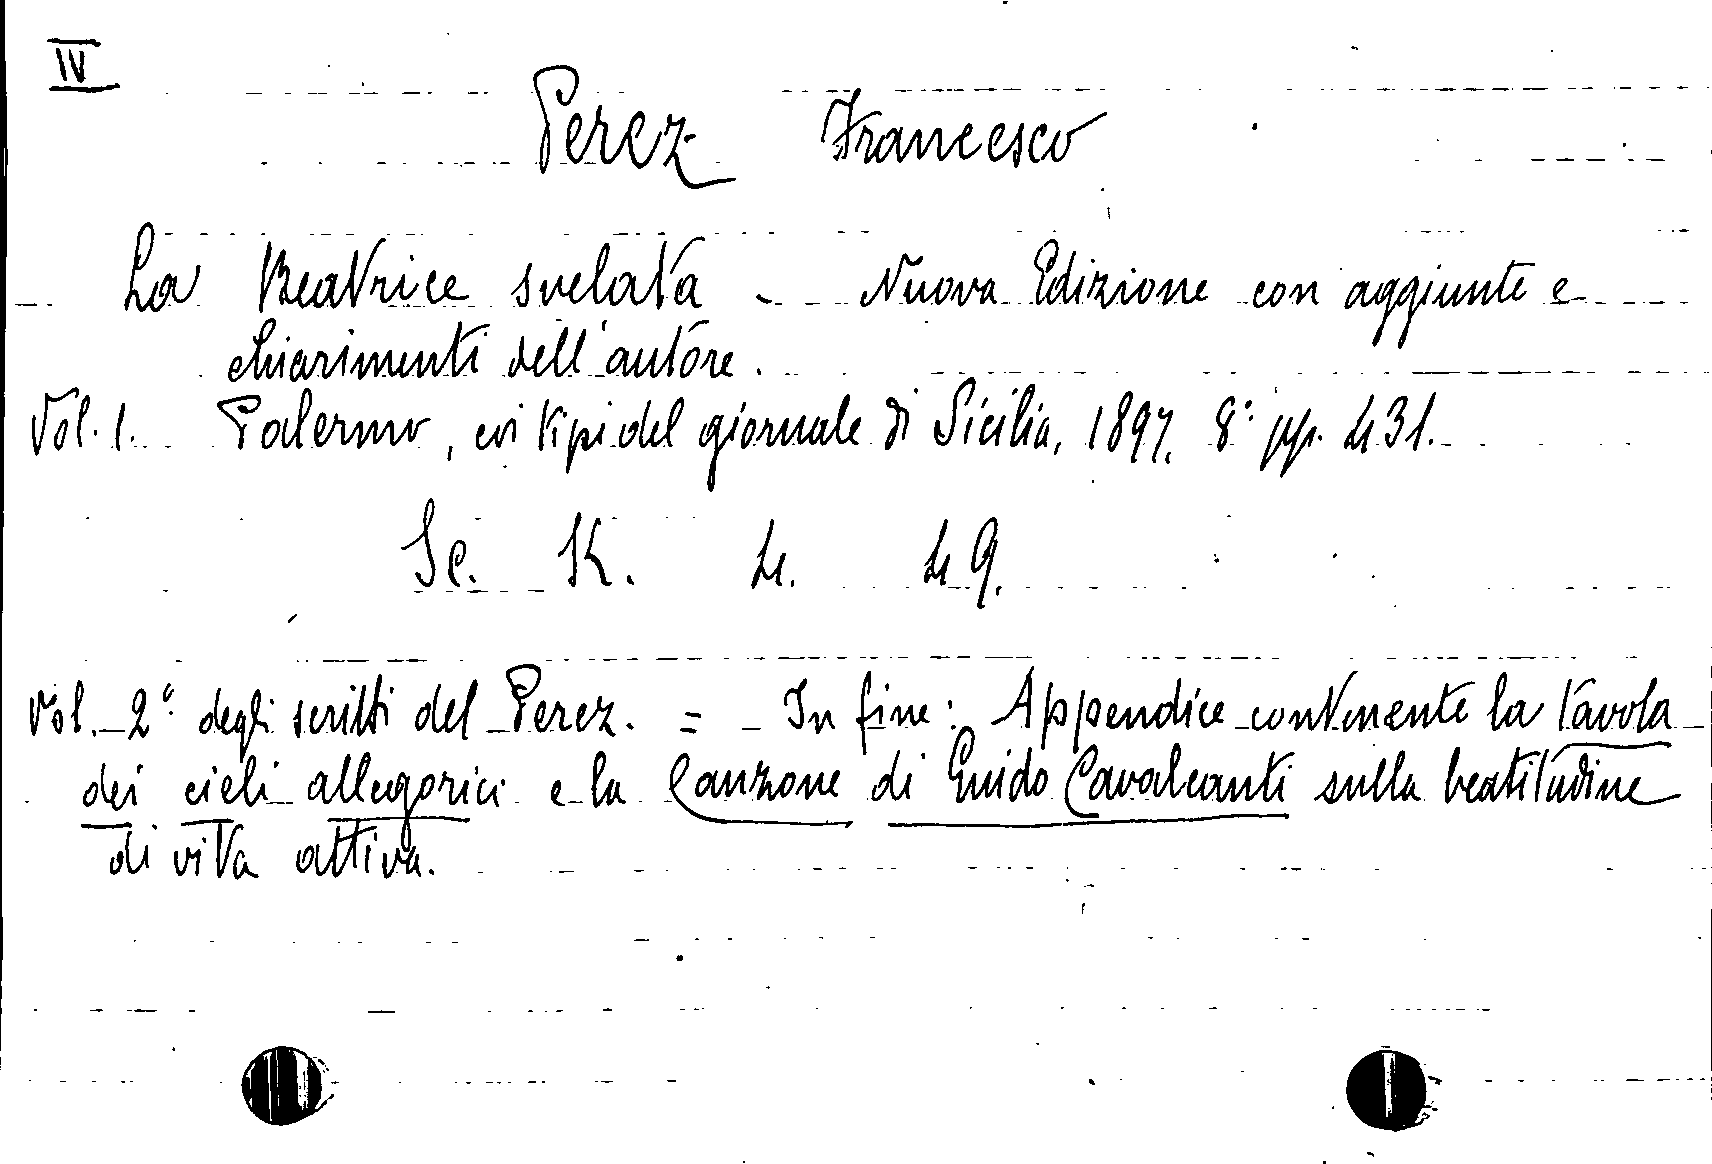 IV
Perez Francesco
La Beatrice svelata - Nuova Edizione con aggiunte e
chiarimenti dell'autore.
Vol. 1. Palermo, coi tipi del giornale di Sicilia, 1897. 8° pp. 431.
Sc. K. 4. 49.
Vol. 2° degli scritti del Perez. = In fine: Appendice contenente la tavola
dei cieli allegorici e la Canzone di Guido Cavalcanti sulla beatitudine
di vita attiva.